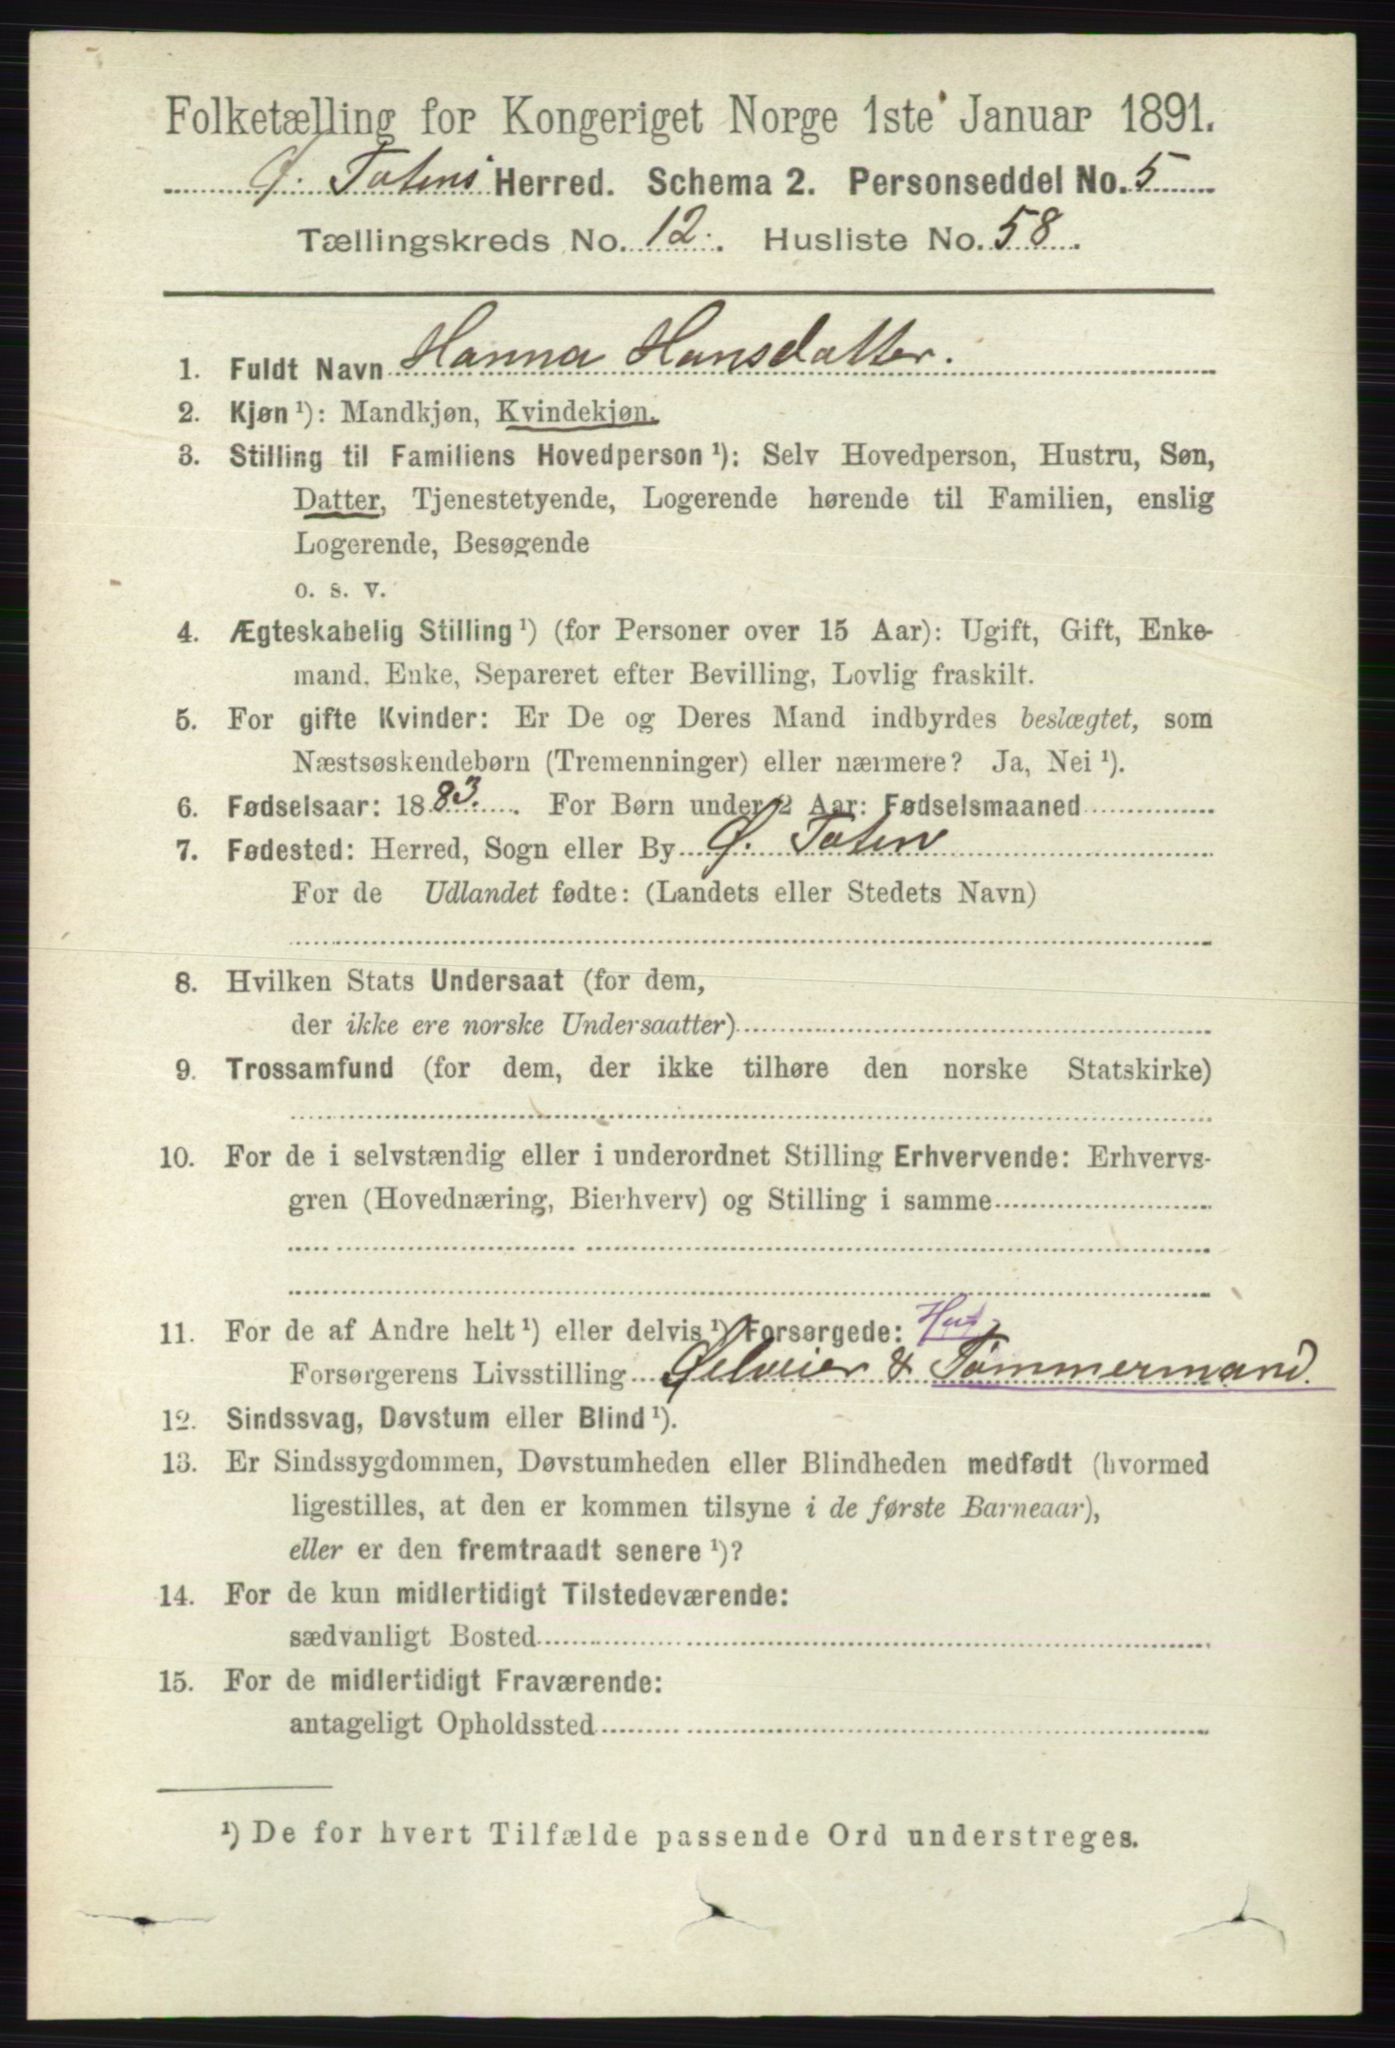 Folketælling for Kongeriget Norge 1ste Januar 1891.
Ø. Totens Herred. Schema 2. Personseddel No. 5
Tællingskreds No. 12. Husliste No. 58.
1. Fuldt Navn Hanna Hansdatter.
2. Kjøn ¹): Mandkjøn, Kvindekjøn.
3. Stilling til Familiens Hovedperson ¹): Selv Hovedperson, Hustru, Søn,
Datter, Tjenestetyende, Logerende hørende til Familien, enslig
Logerende, Besøgende
o. s. v.
4. Ægteskabelig Stilling ¹) (for Personer over 15 Aar): Ugift, Gift, Enke-
mand, Enke, Separeret efter Bevilling, Lovlig fraskilt.
5. For gifte Kvinder: Er De og Deres Mand indbyrdes beslægtet, som
Næstsøskendebørn (Tremenninger) eller nærmere? Ja, Nei ¹).
6. Fødselsaar: 1883. For Børn under 2 Aar: Fødselsmaaned
7. Fødested: Herred, Sogn eller By Ø. Toten
For de Udlandet fødte: (Landets eller Stedets Navn)
8. Hvilken Stats Undersaat (for dem,
der ikke ere norske Undersaatter)
9. Trossamfund (for dem, der ikke tilhøre den norske Statskirke)
10. For de i selvstændig eller i underordnet Stilling Erhvervende: Erhvervs-
gren (Hovednæring, Bierhverv) og Stilling i samme
11. For de af Andre helt ¹) eller delvis ¹) Forsørgede:
Forsørgerens Livsstilling & Tømmermand.
12. Sindssvag, Døvstum eller Blind ¹).
13. Er Sindssygdommen, Døvstumheden eller Blindheden medfødt (hvormed
ligestilles, at den er kommen tilsyne i de første Barneaar),
eller er den fremtraadt senere ¹)?
14. For de kun midlertidigt Tilstedeværende:
sædvanligt Bosted
15. For de midlertidigt Fraværende:
antageligt Opholdssted
¹) De for hvert Tilfælde passende Ord understreges.